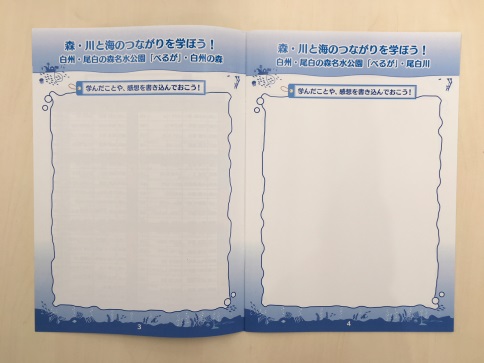 森・川と海のつながりを学ぼう！
白州・尾白の森名水公園「べるが」・白州の森
学んだことや、感想を書き込んでおこう！
3
森・川と海のつながりを学ぼう！
白州・尾白の森名水公園「べるが」・尾白川
学んだことや、感想を書き込んでおこう！
4